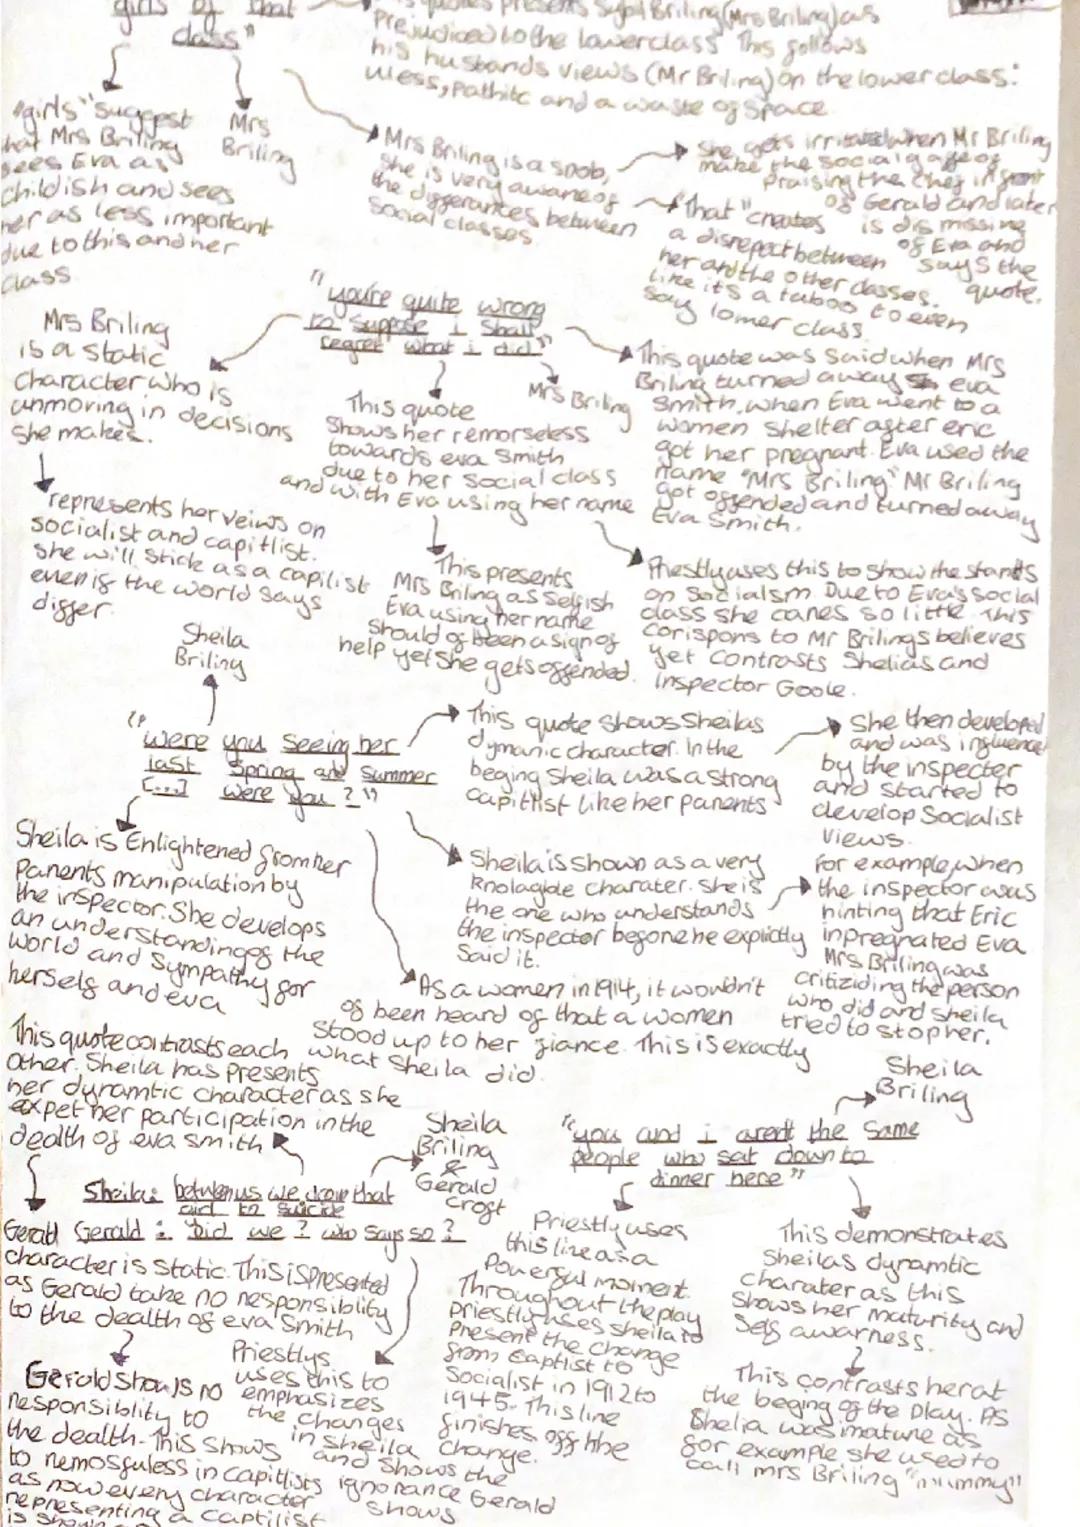 girls of that
class"
This quotes presents Sybil Briling (Mrs Briling) as
Prejudiced to the lower class This follows
his husbands views (Mr Briling) on the lower class:
uless, pathitc and a waste of space.
"girls" suggest
that Mrs Briling
sees Eva as
Childish and sees
her as less important
due to this and her
class.
Mrs
Briling
Mrs Briling is a snob,
She is very aware of
the differances between
Social classes
She gets irritated when Mr Briling
make the social gaffe of
Praising the chef in front
of Gerald and later
is dismissing
of Eva and
says the
quote.
"That" creates
a disrepect between
her and the other classes.
like its a taboo to even
say lower class
"you're quite wrong
to suppose i shall
regret what i did"
Mrs Briling
is a static
Character who is
unmoving in decisions
she makes.
represents her veiws on
socialist and capitlist.
she will stick as a capilist
even if the world says
differ.
This quote
Shows her remorseless
towards eva Smith
due to her social class
and with Eva using her name
Mrs Briling
This quote was said when Mrs
Briling turned away eva
Smith, when Eva went to a
women shelter after eric
got her pregnant. Eva used the
name "Mrs Briling" Mr Briling
got offended and turned away
Eva Smith.
This presents
Mrs Briling as selfish
Eva using her name
should of been a sign of
help yet she gets offended.
Priestly uses this to show the stands
on Socialsm. Due to Eva's social
class she cares so little. This
corispons to Mr Brilings believes
yet contrasts Shelias and
Inspector Goole.
Sheila
Briling
"were you seeing her
last Spring and Summer
[...] were you?"
This quote shows Sheilas
dymanic character. In the
beging Sheila was a strong
capitlist like her parents
She then developed
and was influence
by the inspecter
and started to
develop Socialist
views.
For example, when
the inspector was
hinting that Eric
inpregnated Eva
Mrs Briling was
critiziding the person
who did and sheila
tried to stop her.
Sheila is Enlightened from her
Parents manipulation by
the inspector. She develops
an understanding of the
world and Sympathy for
herself and eva
Sheila is shown as a very
knolagible charater. she is
the one who understands
the inspector before he explictly
Said it.
As a women in 1914, it wouldn't
of been heard of that a women
stood up to her fiance. This is exactly
what Sheila did.
This quote contrasts each
other. Sheila has presents
her dyramtic character as she
expet her participation in the
dealth of eva smith
Sheila
Briling
&
Gerald
Croft
Sheila: between us we drove that
girl to Suicide
Gerald: Did we? who says so?
Sheila
Briling
"you and i arent the same
people who sat down to
dinner here"
Gerald
character is static. This is presented
as Gerald take no responsiblity
to the dealth of eva Smith
Priestlys
uses this to
emphasizes
the changes
in sheila
and shows the
ignorance Gerald
shows
Gerald shows no
responsiblity to
the dealth. This shows
to remosfuless in capitlists
as now every character
representing a captilist
Priestly uses
this line as a
Powerful moment.
Throughout the play
priestly uses sheila to
Present the change
from captist to
Socialist in 1912 to
1945. This line
finishes off the
change.
This demonstrates
sheilas dynamtic
charater as this
shows her maturity and
self awarness.
This contrasts her at
the beging of the play. As
Shelia was imature as
for example she used to
call mrs Briling "mummy"